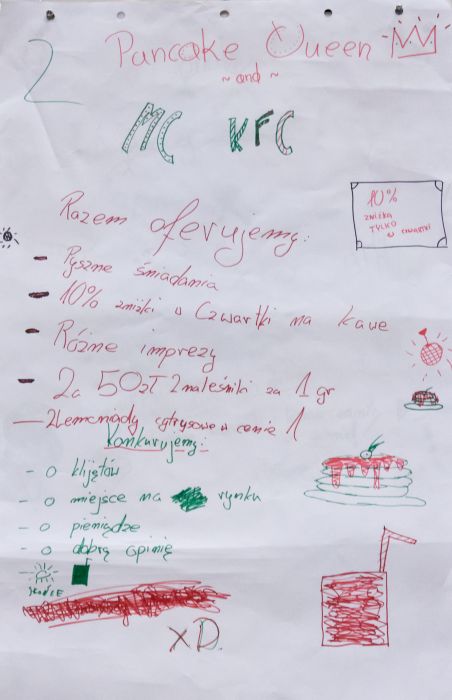 2
Pancake Queen
~ and ~
MC KFC
10%
zniżka
TYLKO
w czwartki
Razem oferujemy:
- Pyszne śniadania
- 10% zniżki w Czwartki na kawe
- Różne imprezy
- Za 50zł 2 naleśniki za 1 gr
- 2 Lemoniady cytrysowe w cenie 1
Konkurujemy:
- o klijętów
- o miejsce na rynku
- o pieniądze
- o dobrą opinię
XD.